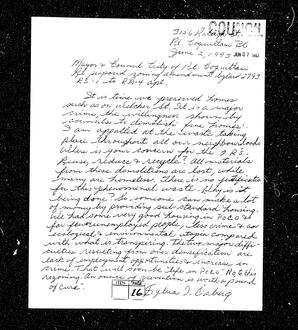 COUNCIL
Pt. Coquitlam BC
June 2, 1993 JUN 07 1993
Mayor & Council City of Pt. Coquitlam
Re proposed zoning amendment bylaw 2793
RS-1 to RM-4 apt.
It is time we preserved homes
such as on Welcher St. It is a major
crime, the willingness shown by
councils to demolish fine homes.
I am appalled at the waste taking
place throughout all our neighborhoods
Where is your concern for the 3 R's -
Reuse, reduce & recycle? All materials
from these demolitions are lost, while
many are homeless. There is no justification
for this phenomenal waste. Why is it
being done? So someone can make a lot
of money by providing sub standard housing.
We had some very good housing in POCO
few unemployed people, less crime & an
ecological & environmental utopia compared
with what is transpiring. The two major diffi-
culties resulting from over densification are
lack of employment opportunities & increase in
crime. That will soon be life in POCO. No to this
rezoning. An ounce of prevention is worth a pound
of cure.
ITEM PAGE
16